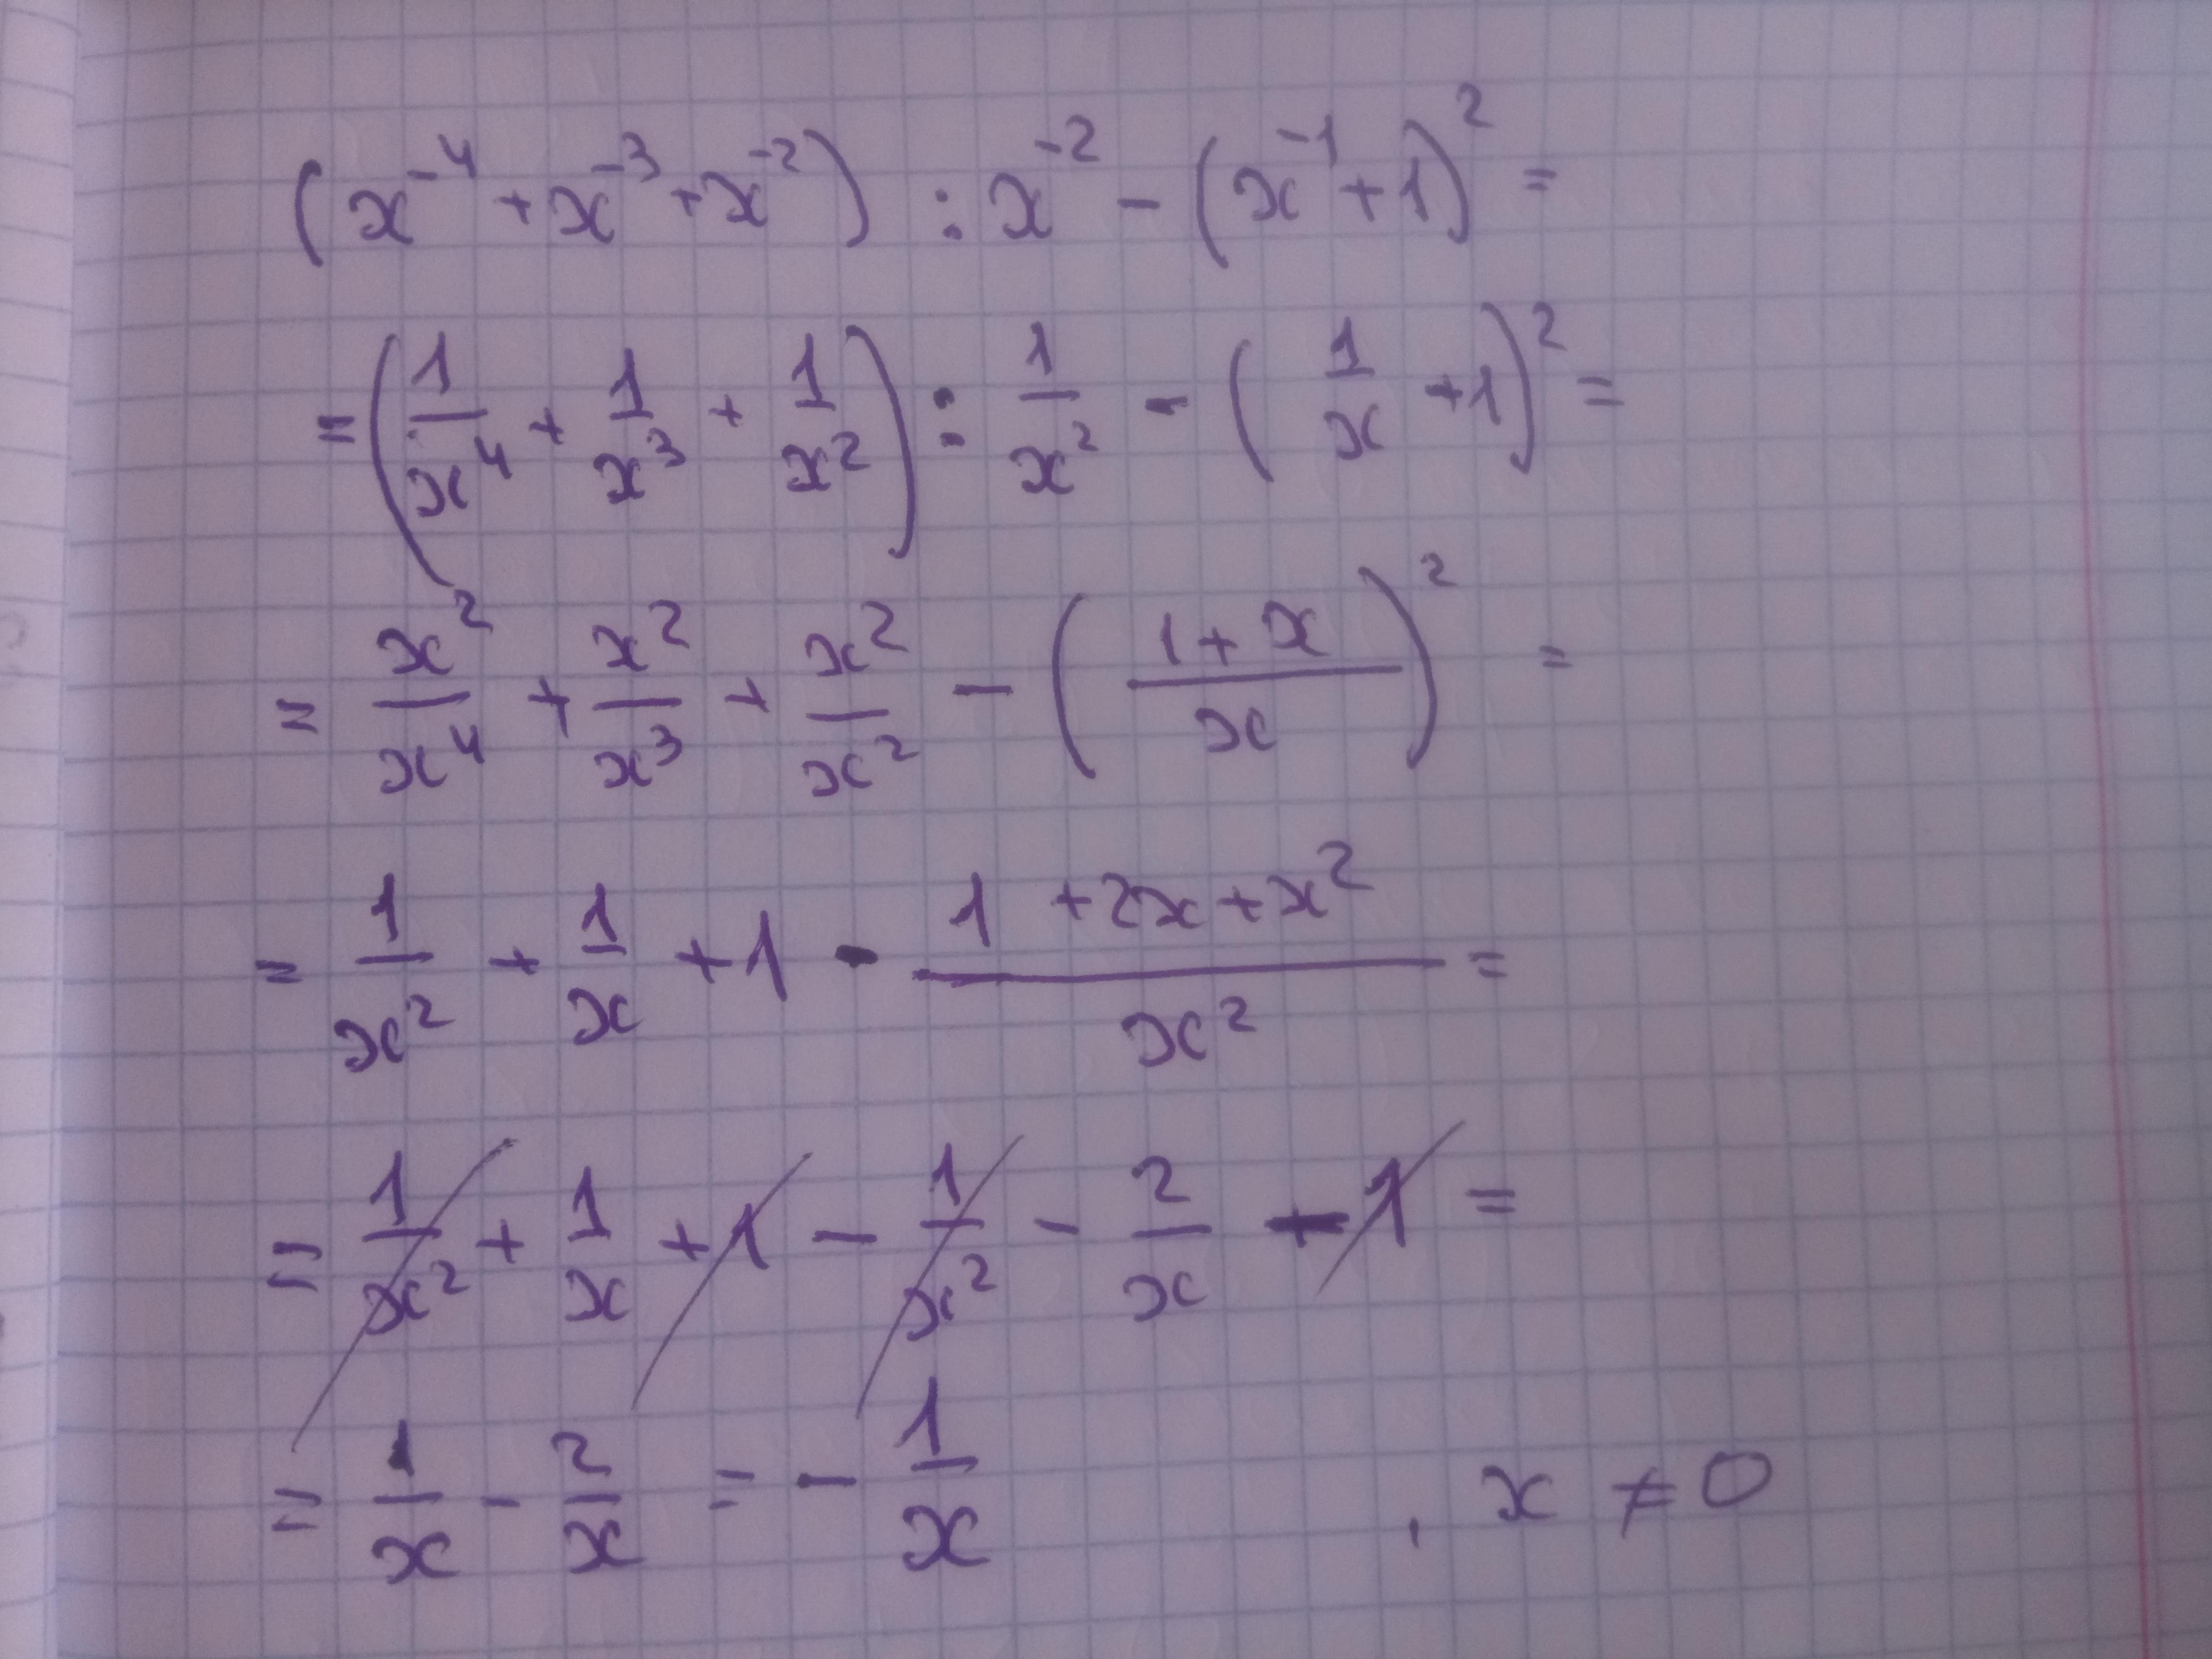 (x⁻⁴ + x⁻³ + x⁻²) : x⁻² - (x⁻¹ + 1)² =
= (1/x⁴ + 1/x³ + 1/x²) : 1/x² - (1/x + 1)² =
= x²/x⁴ + x²/x³ + x²/x² - ((1 + x)/x)² =
= 1/x² + 1/x + 1 - (1 + 2x + x²)/x² =
= 1/x² + 1/x + 1 - 1/x² - 2/x - 1 =
= 1/x - 2/x = - 1/x , x ≠ 0